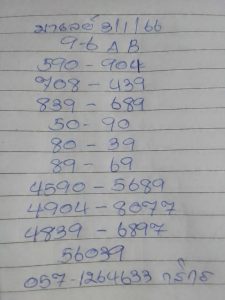 มาเลย์ 3/1/66
9-6 A B
590 - 904
708 - 439
839 - 689
50 - 90
80 - 39
89 - 69
4590 - 5689
4904 - 8077
4839 - 6897
56039
057-1264633